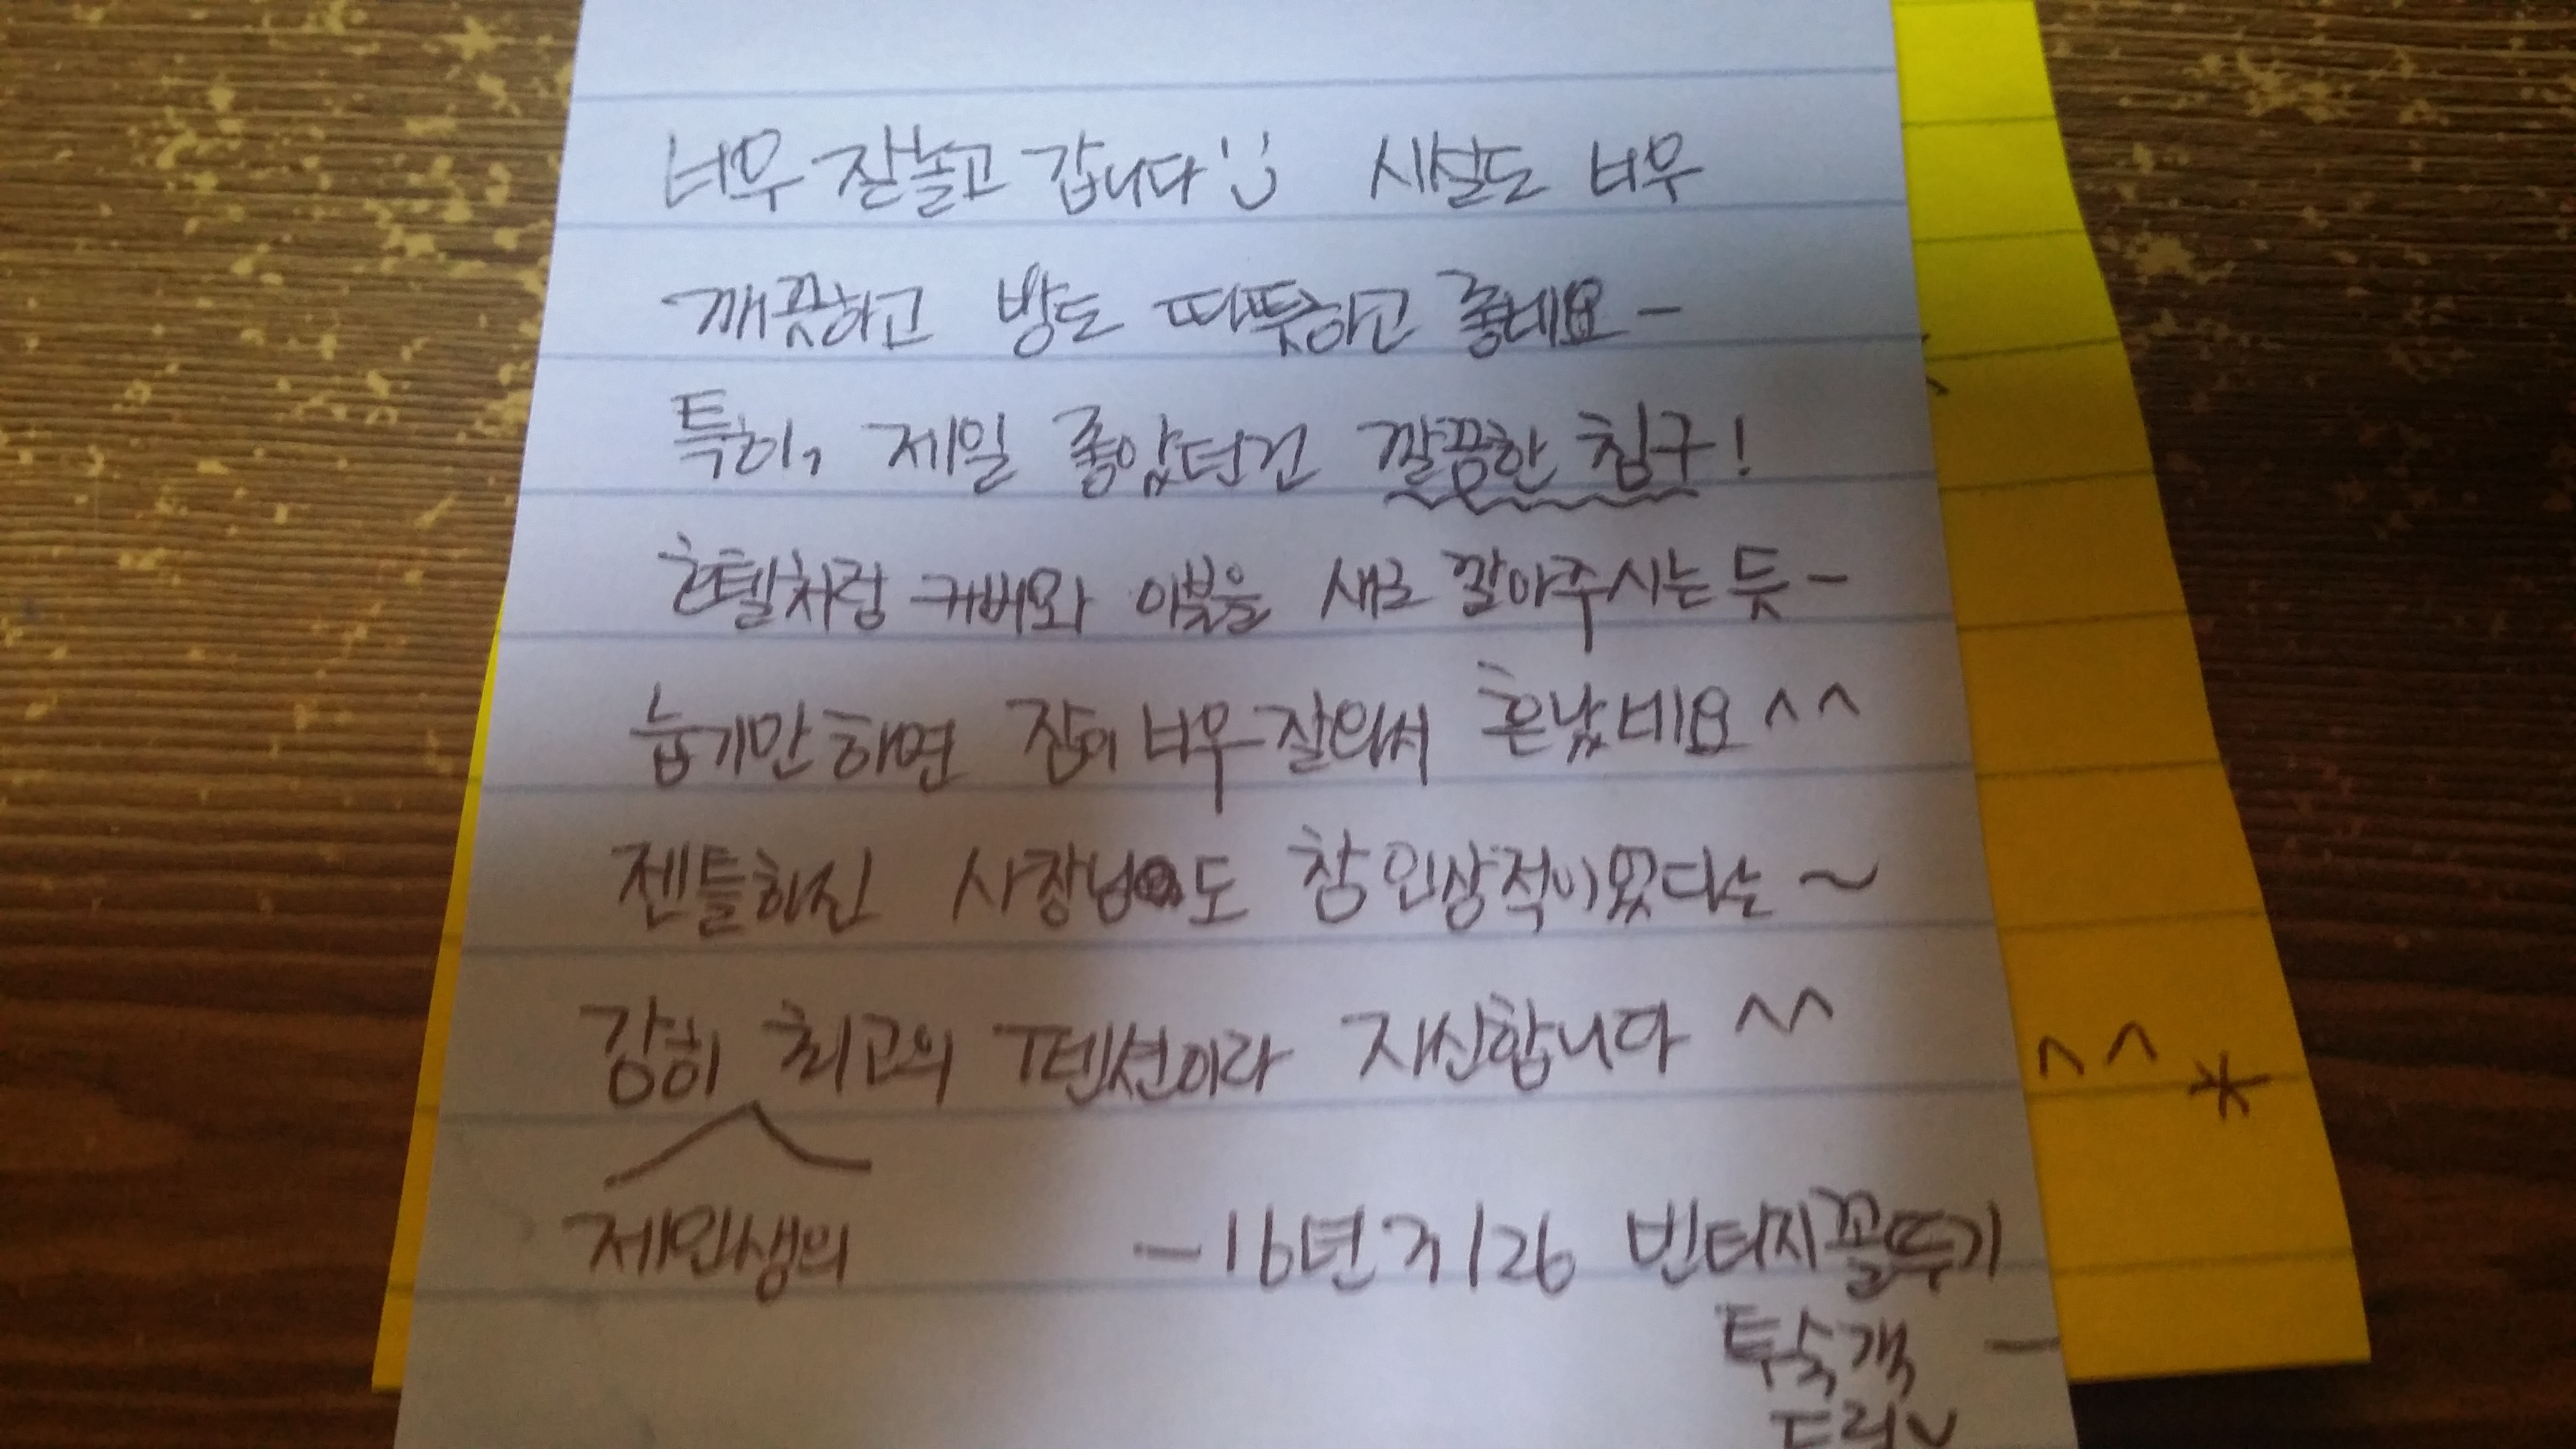 너무 잘놀고 갑니다 시설도 너무
깨끗하고 방도 따뜻하고 좋네요-
특히, 제일 좋았던건 깔끔한 침구!
호텔처럼 커버와 이불을 새로 깔아주시는 듯-
눕기만하면 잠이 너무 잘와서 혼났네요^^
젠틀하신 사장님도 참 인상적이었다는~
감히 최고의 펜션이라 자신합니다 ^^
제인생의
-16년 지126 빈터지꼴뚜기
투숙객 -
드림
^^*